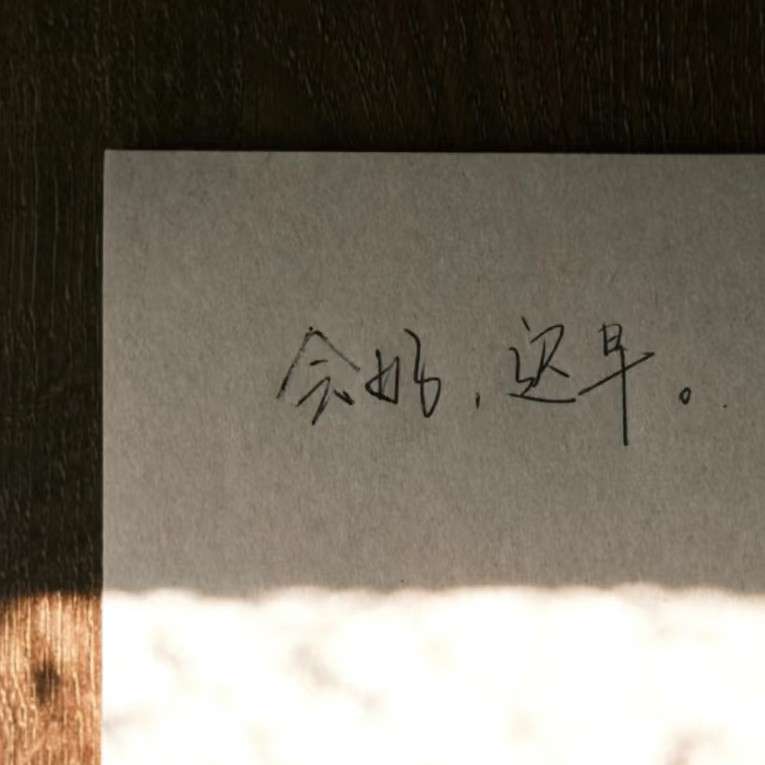 会好，迟早。